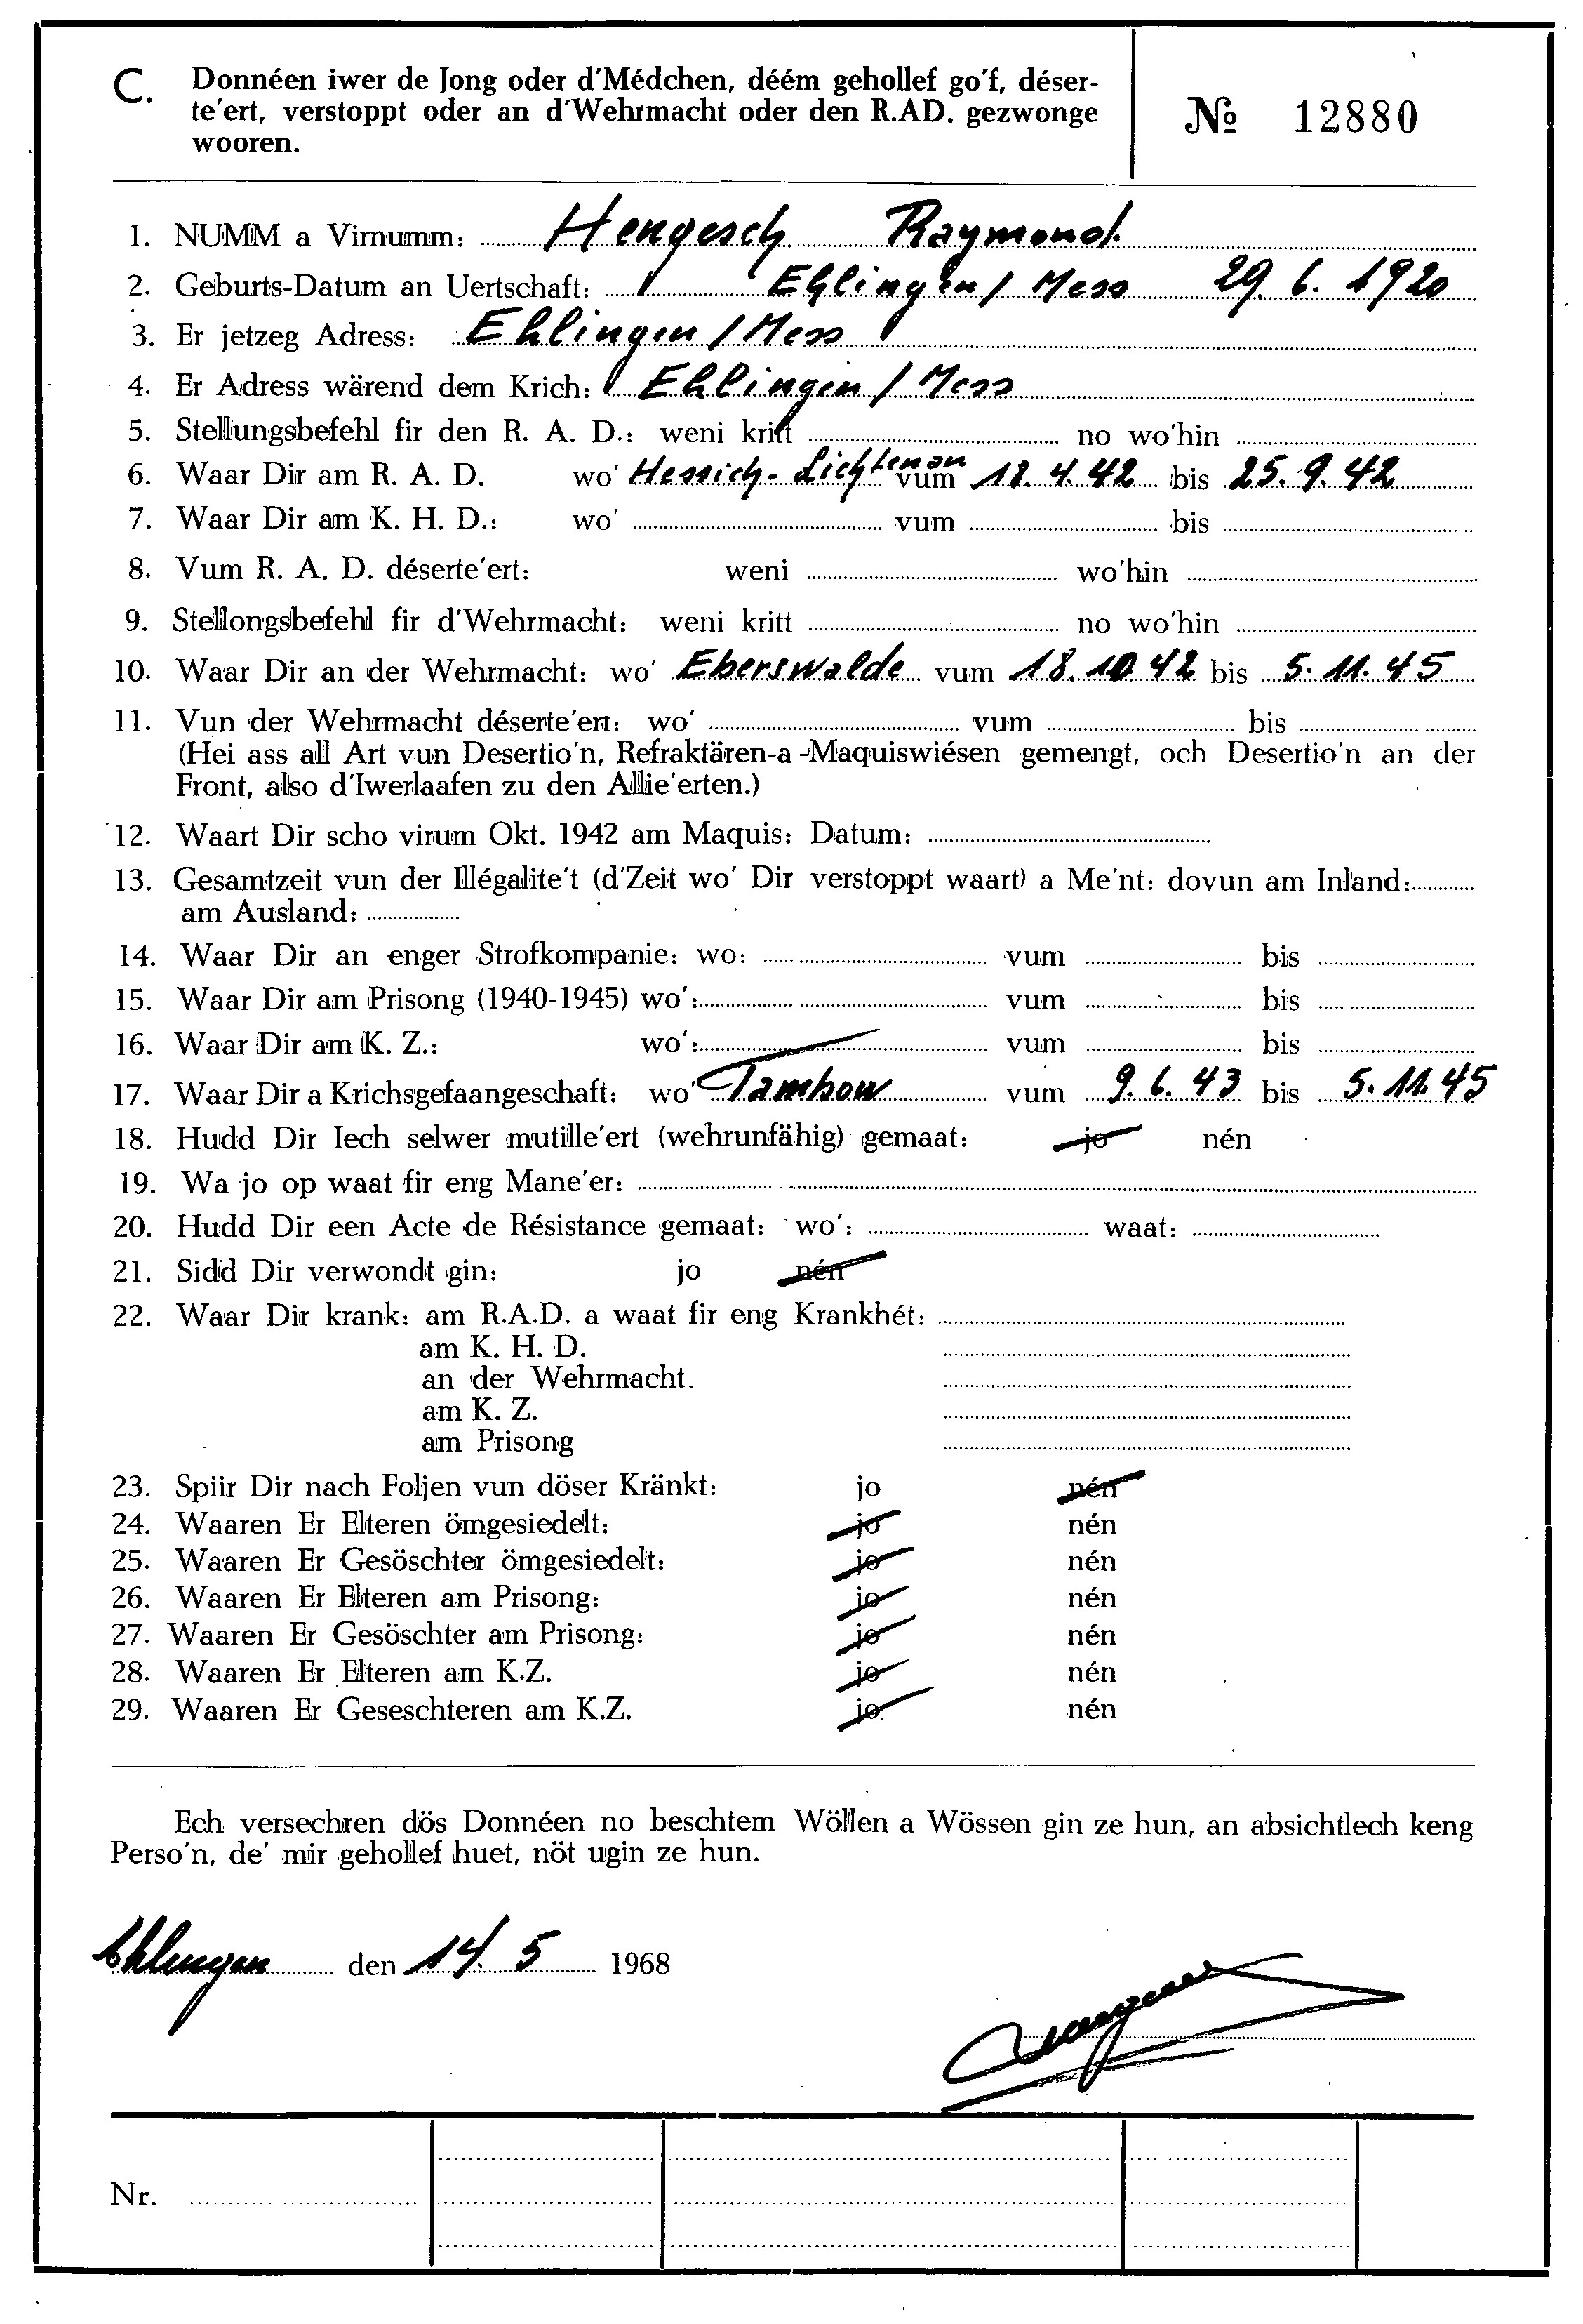 C. Donnéen iwer de Jong oder d'Médchen, déém gehollef go'f, déser-
te'ert, verstoppt oder an d'Wehrmacht oder den R.AD. gezwonge
wooren.
№ 12880
1. NUMM a Virnumm: Hengesch Raymond.
2. Geburts-Datum an Uertschaft: Ehlingen / Mess 29. 6. 1920
3. Er jetzeg Adress: Ehlingen / Mess
4. Er Adress wärend dem Krich: Ehlingen / Mess
5. Stellungsbefehl fir den R. A. D.: weni kritt no wo'hin
6. Waar Dir am R. A. D. wo' Hessich-Lichtenau vum 18. 4. 42 bis 25. 9. 42
7. Waar Dir am K. H. D.: wo' vum bis
8. Vum R. A. D. déserte'ert: weni wo'hin
9. Stellongsbefehl fir d'Wehrmacht: weni kritt no wo'hin
10. Waar Dir an der Wehrmacht: wo' Eberswalde vum 18. 10. 42 bis 5. 11. 45
11. Vun der Wehrmacht déserte'ert: wo' vum bis
(Hei ass all Art vun Desertio'n, Refraktären-a-Maquiswiésen gemengt, och Desertio'n an der
Front, also d'Iwerlaafen zu den Allie'erten.)
12. Waart Dir scho virum Okt. 1942 am Maquis: Datum:
13. Gesamtzeit vun der Illégalite't (d'Zeit wo' Dir verstoppt waart) a Me'nt: dovun am Inland:
am Ausland:
14. Waar Dir an enger Strofkompanie: wo: vum bis
15. Waar Dir am Prisong (1940-1945) wo': vum bis
16. Waar Dir am K. Z.: wo': vum bis
17. Waar Dir a Krichsgefaangeschaft: wo' Tambow vum 9. 6. 43 bis 5. 11. 45
18. Hudd Dir Iech selwer mutille'ert (wehrunfähig) gemaat: jo nén
19. Wa jo op waat fir eng Mane'er:
20. Hudd Dir een Acte de Résistance gemaat: wo': waat:
21. Sidd Dir verwondt gin: jo nén
22. Waar Dir krank: am R.A.D. a waat fir eng Krankhét:
am K. H. D.
an der Wehrmacht.
am K. Z.
am Prisong
23. Spiir Dir nach Foljen vun döser Kränkt: jo nén
24. Waaren Er Elteren ömgesiedelt: jo nén
25. Waaren Er Gesöschter ömgesiedelt: jo nén
26. Waaren Er Elteren am Prisong: jo nén
27. Waaren Er Gesöschter am Prisong: jo nén
28. Waaren Er Elteren am K.Z. jo nén
29. Waaren Er Geseschteren am K.Z. jo nén
Ech versechren dös Donnéen no beschtem Wöllen a Wössen gin ze hun, an absichtlech keng
Perso'n, de' mir gehollef huet, nöt ugin ze hun.
Ehlingen den 14. 5 1968
Nr.